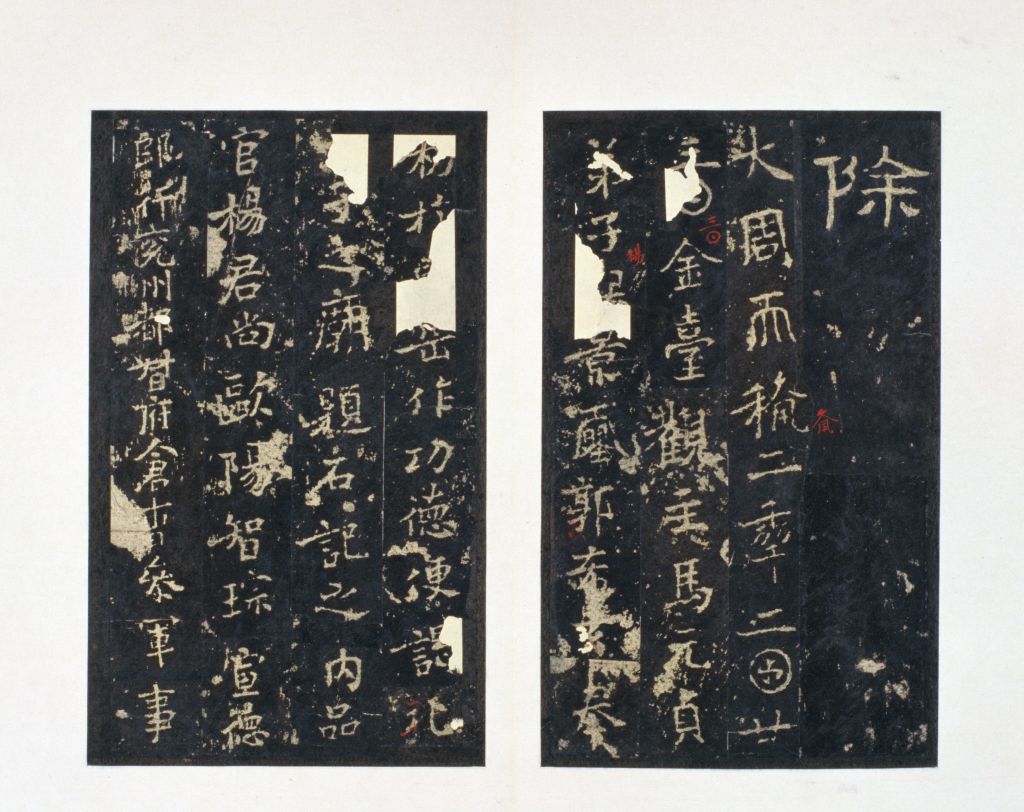 除
大周𠀑𥠢二𠡦二囝廿
金臺觀主馬元貞
弟子楊景𡔈郭希玄奉
敕於東岳作功德便謁孔
夫子之廟題石記之內品
官楊君尚歐陽智琮宣德
郎行兗州都督府倉曹參軍事
三日
楊